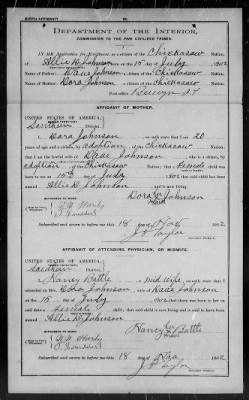 BIRTH AFFIDAVIT.
DEPARTMENT OF THE INTERIOR,
COMMISSION TO THE FIVE CIVILIZED TRIBES.
IN RE Application for Enrollment, as a citizen of the Chickasaw Nation,
of Allie D. Johnson, born on the 15 day of July, 1902
Name of Father: Dave Johnson, a citizen of the Chickasaw Nation.
Name of Mother: Dora Johnson, a citizen of the Chickasaw Nation.
Post-office Berwyn I.T
AFFIDAVIT OF MOTHER.
UNITED STATES OF AMERICA,
Southern District.
I, Dora Johnson, on oath state that I am 20
years of age and a citizen, by adoption, of the Chickasaw
Nation; that I am the lawful wife of Dave Johnson, who is a citizen, by
adoption, of the Chickasaw Nation; that a female child
was born to me on 15th day of July, 1902; that said child has been named
Allie D. Johnson, and is now living.
Dora Johnson
18 day of 1902
J Taylor
AFFIDAVIT OF ATTENDING PHYSICIAN, OR MIDWIFE.
UNITED STATES OF AMERICA,
Southern District.
I, Nancy Battle, a mid wife, on oath state that I
attended on Mrs. Dora Johnson, wife of Dave Johnson
on the 15 day of July, 1902; that there was born to her on
said date a female child; that said child is now living and is said to have been
named Allie D. Johnson
Nancy Battle
18 day of 1902
J Taylor